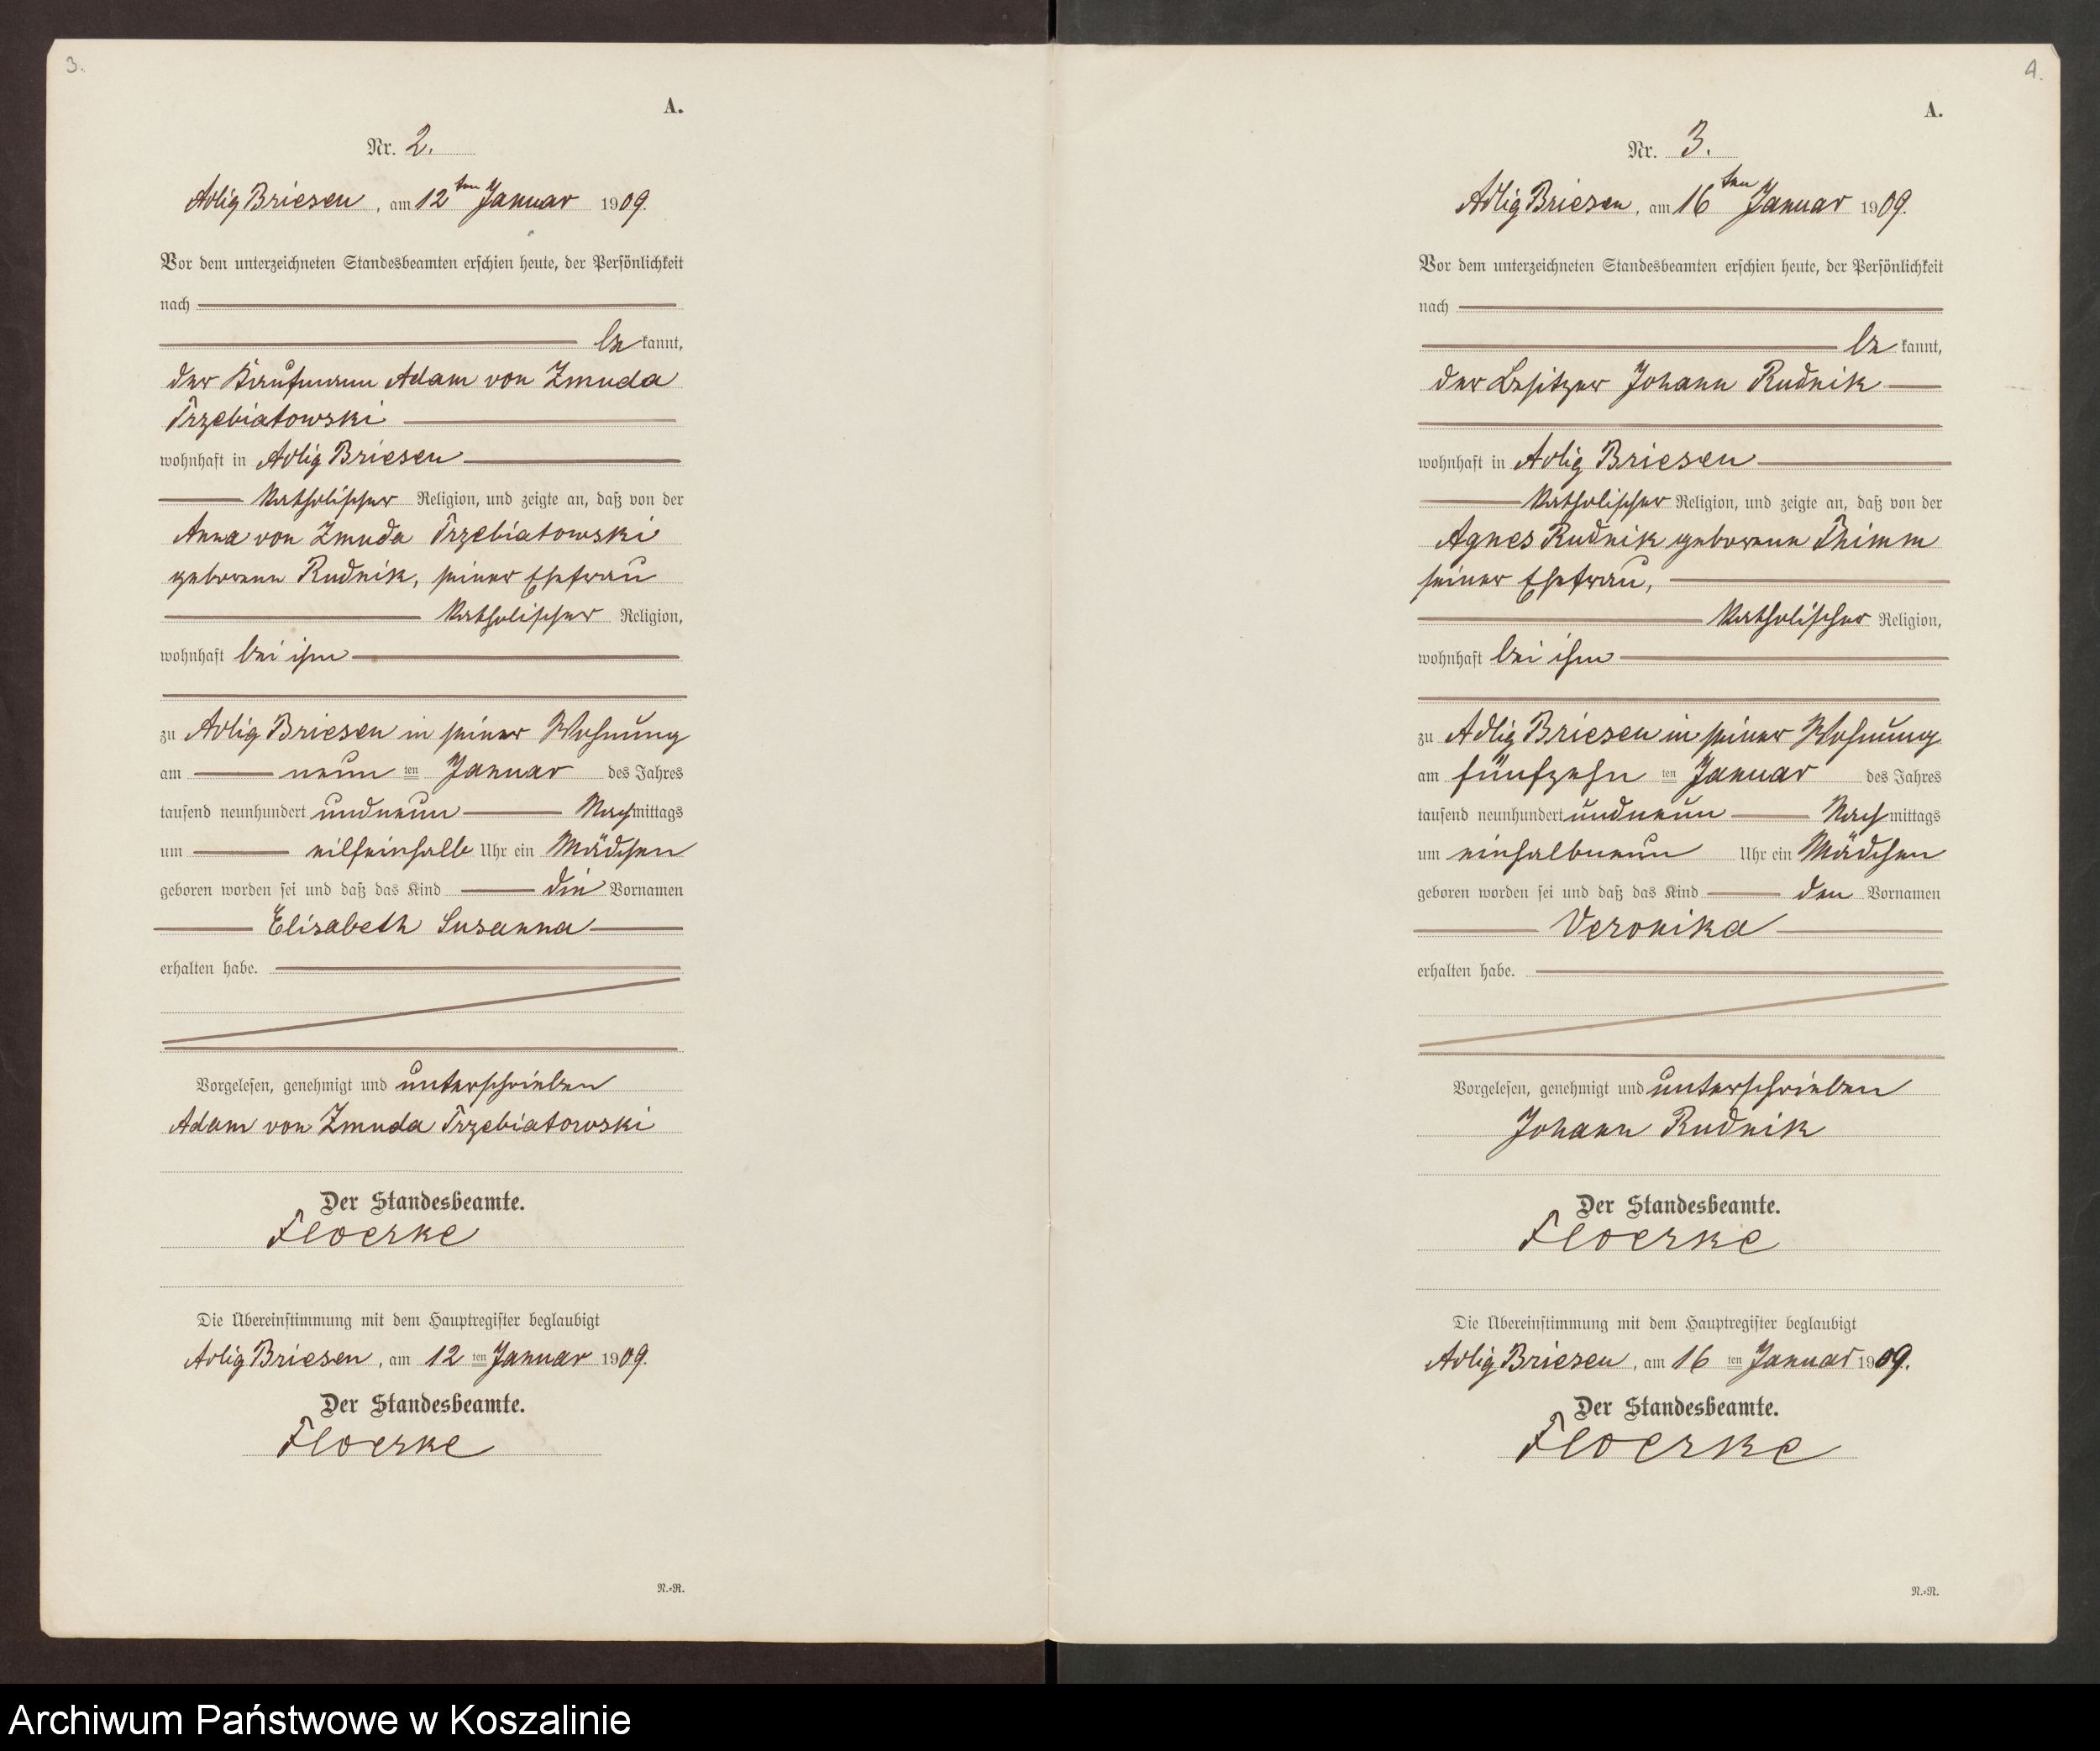 3.
A.
Nr. 2.
Adlig Briesen, am 12ten Januar 1909.
Vor dem unterzeichneten Standesbeamten erschien heute, der Persönlichkeit
nach
bekannt,
der Kaufmann Adam von Zmuda
Trzebiatowski
wohnhaft in Adlig Briesen
katholischer Religion, und zeigte an, daß von der
Anna von Zmuda Trzebiatowski
geborenen Rudnik, seiner Ehefrau
katholischer Religion,
wohnhaft bei ihm
zu Adlig Briesen in seiner Wohnung
am neunten Januar des Jahres
tausend neunhundert undneun Nachmittags
um eilfeinhalb Uhr ein Mädchen
geboren worden sei und daß das Kind die Vornamen
Elisabeth Susanna
erhalten habe.
Vorgelesen, genehmigt und unterschrieben
Adam von Zmuda Trzebiatowski
Der Standesbeamte.
Floerke
Die Übereinstimmung mit dem Hauptregister beglaubigt
Adlig Briesen, am 12ten Januar 1909.
Der Standesbeamte.
Floerke
N.-R.
4.
A.
Nr. 3.
Adlig Briesen, am 16ten Januar 1909.
Vor dem unterzeichneten Standesbeamten erschien heute, der Persönlichkeit
nach
bekannt,
der Besitzer Johann Rudnik
wohnhaft in Adlig Briesen
katholischer Religion, und zeigte an, daß von der
Agnes Rudnik geborenen Thimm
seiner Ehefrau,
katholischer Religion,
wohnhaft bei ihm
zu Adlig Briesen in seiner Wohnung
am fünfzehnten Januar des Jahres
tausend neunhundert undneun Nachmittags
um einhalbneun Uhr ein Mädchen
geboren worden sei und daß das Kind den Vornamen
Veronika
erhalten habe.
Vorgelesen, genehmigt und unterschrieben
Johann Rudnik
Der Standesbeamte.
Floerke
Die Übereinstimmung mit dem Hauptregister beglaubigt
Adlig Briesen, am 16ten Januar 1909.
Der Standesbeamte.
Floerke
N.-R.
Archiwum Państwowe w Koszalinie